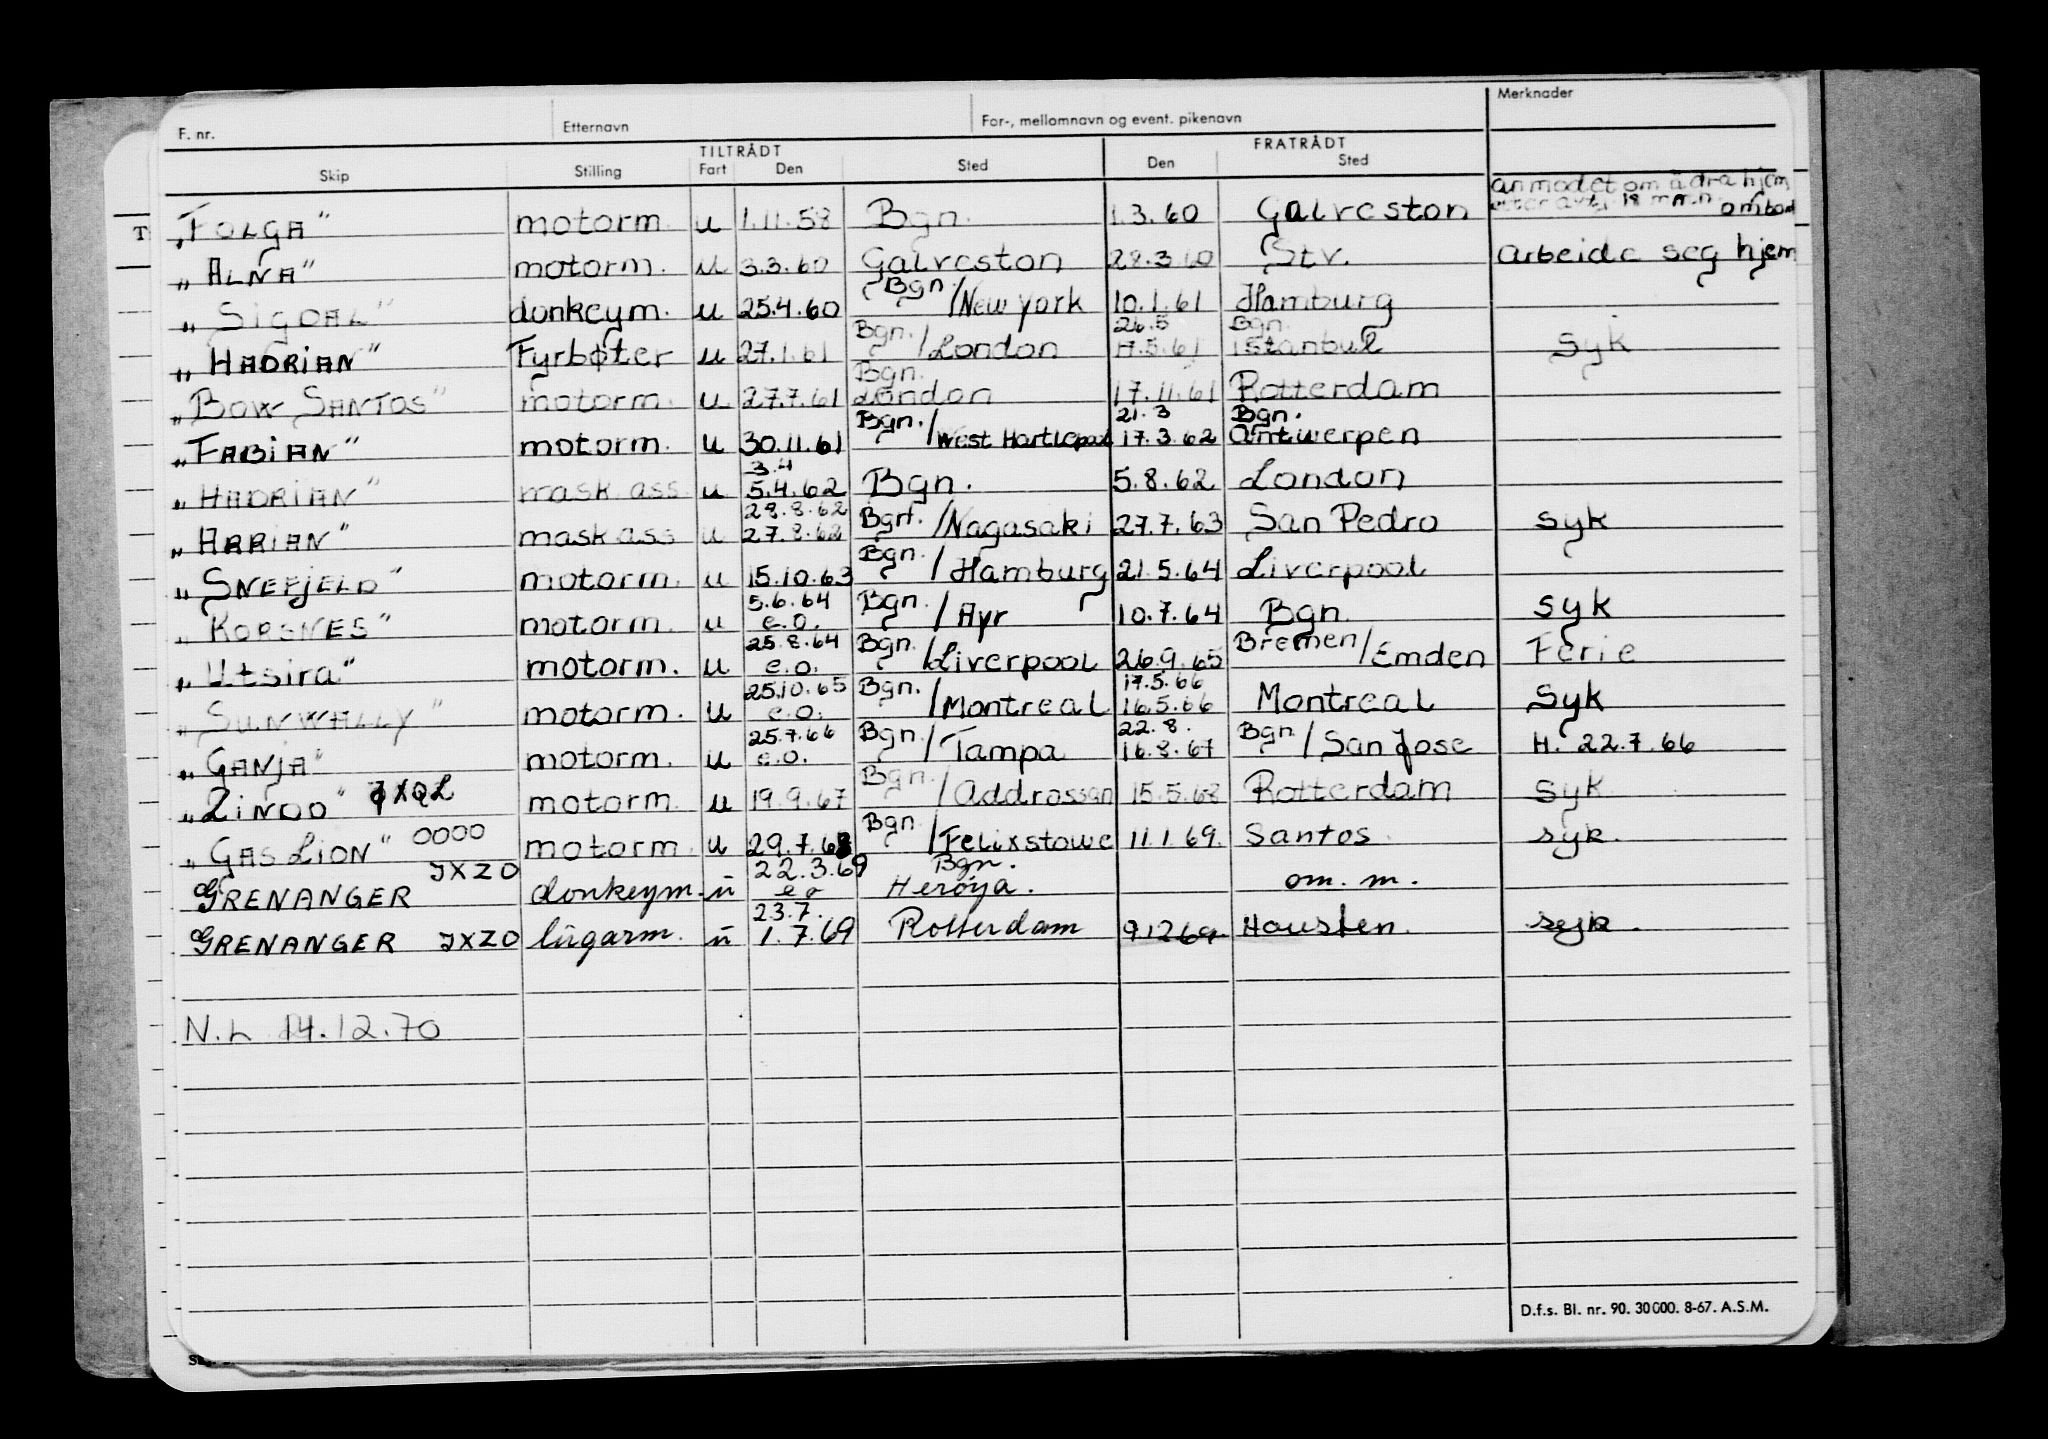 F. nr. Etternavn For-, mellomnavn og event. pikenavn Merknader
TILTRÅDT FRATRÅDT
Skip Stilling Fart Den Sted Den Sted
anmodet om å dra hjem
„FOLGA" motorm. u 1.11.58 Bgn. 1.3.60 Galveston 18 mnd ombord
„ALNA" motorm. u 3.3.60 Galveston 28.3.60 Stv. Arbeide seg hjem
„SIGDAL" donkeym. u 25.4.60 Bgn/New york 10.1.61 Hamburg
26.5 Bgn.
„HADRIAN" Fyrbøter u 27.1.61 Bgn./London 17.5.61 istanbul syk
„BOW SANTOS" motorm. u 27.7.61 Bgn. London 17.11.61 Rotterdam
21.3 Bgn.
„FABIAN" motorm. u 30.11.61 Bgn./West Hartlepool 17.3.62 Antwerpen
3.4
„HADRIAN" mask. ass. u 5.4.62 Bgn. 5.8.62 London
28.8.62
„ARRIAN" mask ass u 27.8.62 Bgn./Nagasaki 27.7.63 San Pedro syk
„SNEFJELD" motorm. u 15.10.63 Bgn./Hamburg 21.5.64 Liverpool
5.6.64
„KORSNES" motorm. u e.o. Bgn./Ayr 10.7.64 Bgn. syk
25.8.64
„Utsira" motorm. u e.o. Bgn./Liverpool 26.9.65 Bremen/Emden Ferie
25.10.65 17.5.66
„SUNWALLY" motorm. u e.o. Bgn./Montreal 16.5.66 Montreal syk
25.7.66 22.8.
„GANJA" motorm. u e.o. Bgn/Tampa 16.8.67 Bgn/San Jose H. 22.7.66
„ZINDO" JXQL motorm. u 19.9.67 Bgn./Addrossan 15.5.68 Rotterdam syk
„GAS LION" OOOO motorm. u 29.7.68 Bgn/Felixstowe 11.1.69. Santos. syk.
22.3.69 Bgn.
GRENANGER JXZO donkeym. u eo Herøya. om. m.
23.7.
GRENANGER JXZO lugarm. u 1.7.69 Rotterdam 9.12.69 Housten. syk.
N.L 14.12.70
D.f.s. Bl. nr. 90. 30000. 8-67. A.S.M.